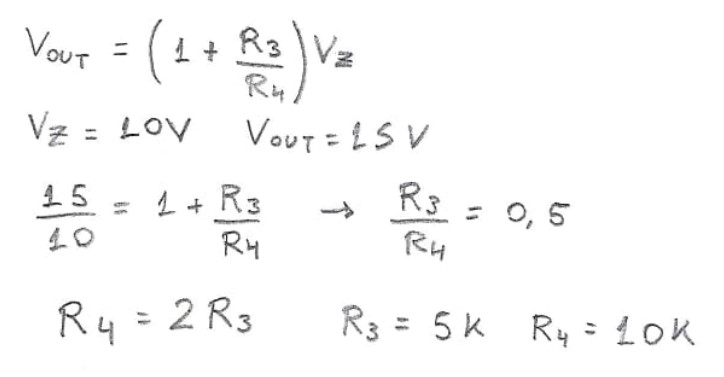 V_OUT = (1 + R3/R4) Vz
Vz = 10V   V_OUT = 15V
15/10 = 1 + R3/R4 → R3/R4 = 0,5
R4 = 2 R3   R3 = 5K   R4 = 10K